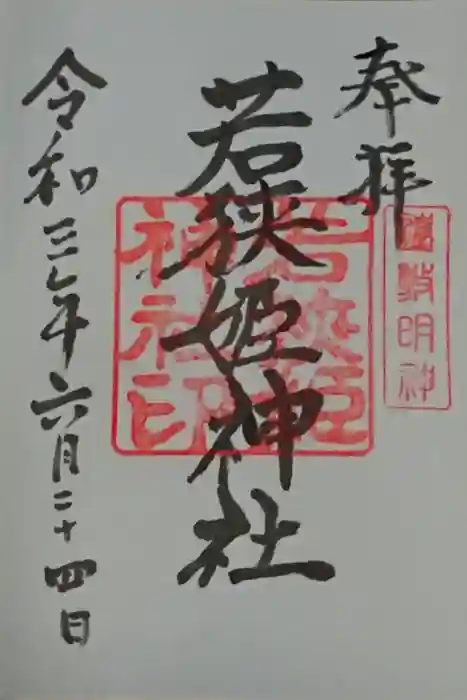 奉拝
遠敷明神
若狭姫神社
若狭姫
神社印
令和三年六月二十四日